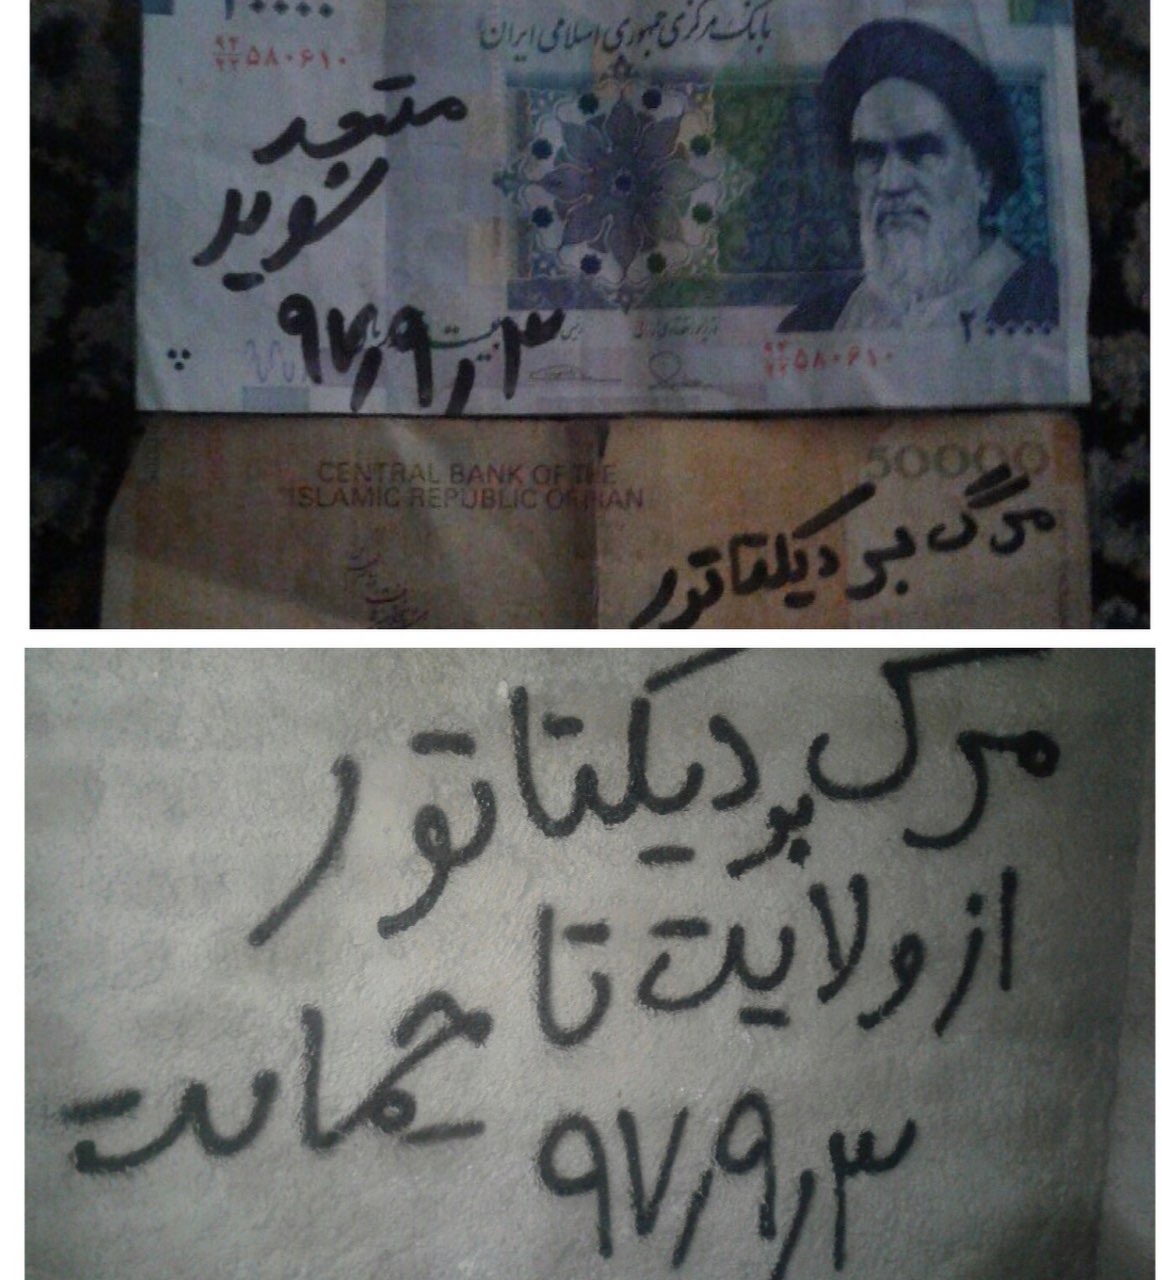 ۲۰۰۰۰
بانک مرکزی جمهوری اسلامی ایران
۵۸۰۶۱۰
متحد
شوید
۹۷/۹/۳
۲۰۰۰۰
۵۸۰۶۱۰
CENTRAL BANK OF THE
ISLAMIC REPUBLIC OF IRAN
50000
مرگ بر دیکتاتور
مرگ بر دیکتاتور
از ولایت تا
حمایت
۹۷/۹/۳